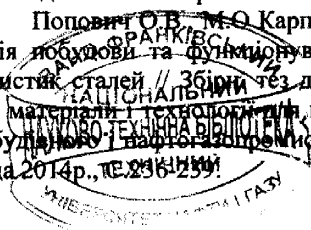 Попович О.В. М.О Карп
ія побудови та функціонув
истик сталей // Збірн. тез д
матеріали і технології для
будівного і нафтогазопромис
да 2014р., С.236-239.
ФРАНКІВСЬ
НАЦІОНАЛЬНИЙ
НАУКОВО-ТЕХНІЧНА БІБЛІОТЕКА
ТЕХНІЧНИЙ
УНІВЕРСИТЕТ НАФТИ І ГАЗУ